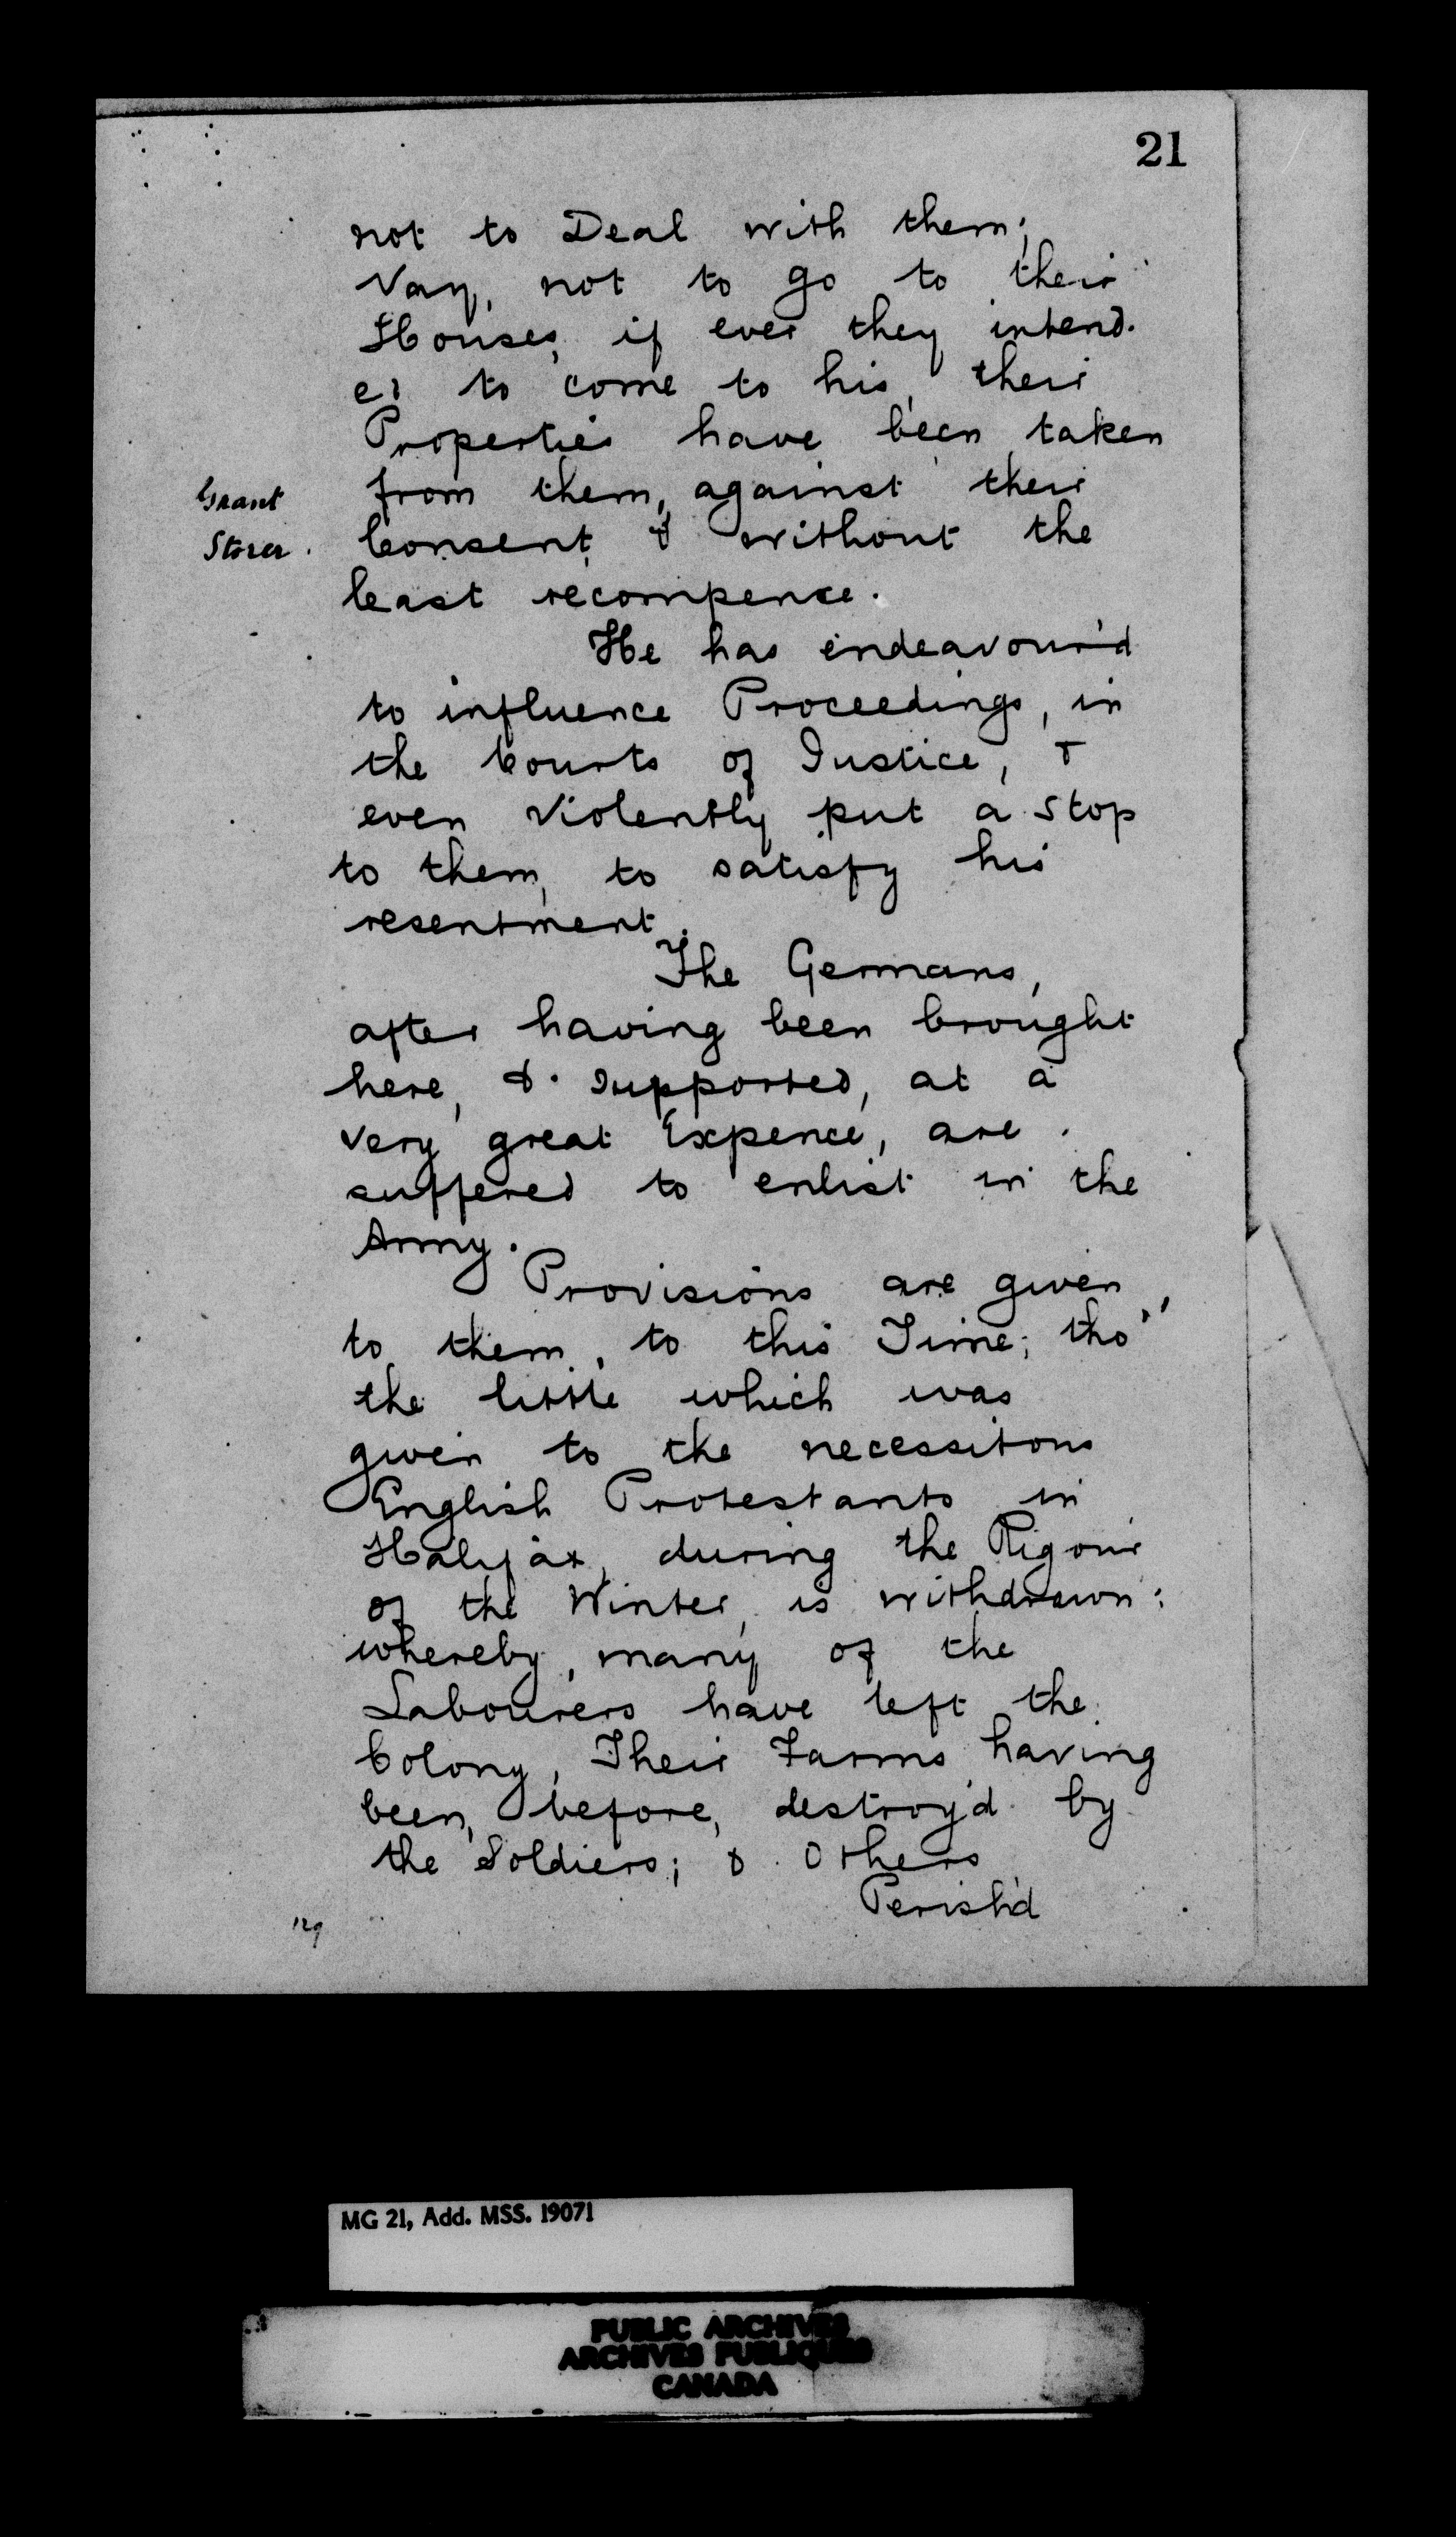 21
not to Deal with them;
Nay, not to go to their
Houses, if ever they intend-
ed to come to his, their
Properties have been taken
Grant from them, against their
Storer. Consent, & without the
least recompence.
He has endeavour'd
to influence Proceedings, in
the Courts of Justice, &
even Violently put a stop
to them, to satisfy his
resentment.
The Germans,
after having been brought
here, & supported, at a
very great Expence, are
suffered to enlist in the
Army.
Provisions are given,
to them, to this Time; tho'
the little which was
given to the necessitous
English Protestants in
Halifax, during the Rigour
of the Winter, is withdrawn:
whereby, many of the
Labourers have left the
Colony, Their Farms having
been, before, destroy'd by
the Soldiers; & Others
Perish'd
129
MG 21, Add. MSS. 19071
PUBLIC ARCHIVES
ARCHIVES PUBLIQUES
CANADA